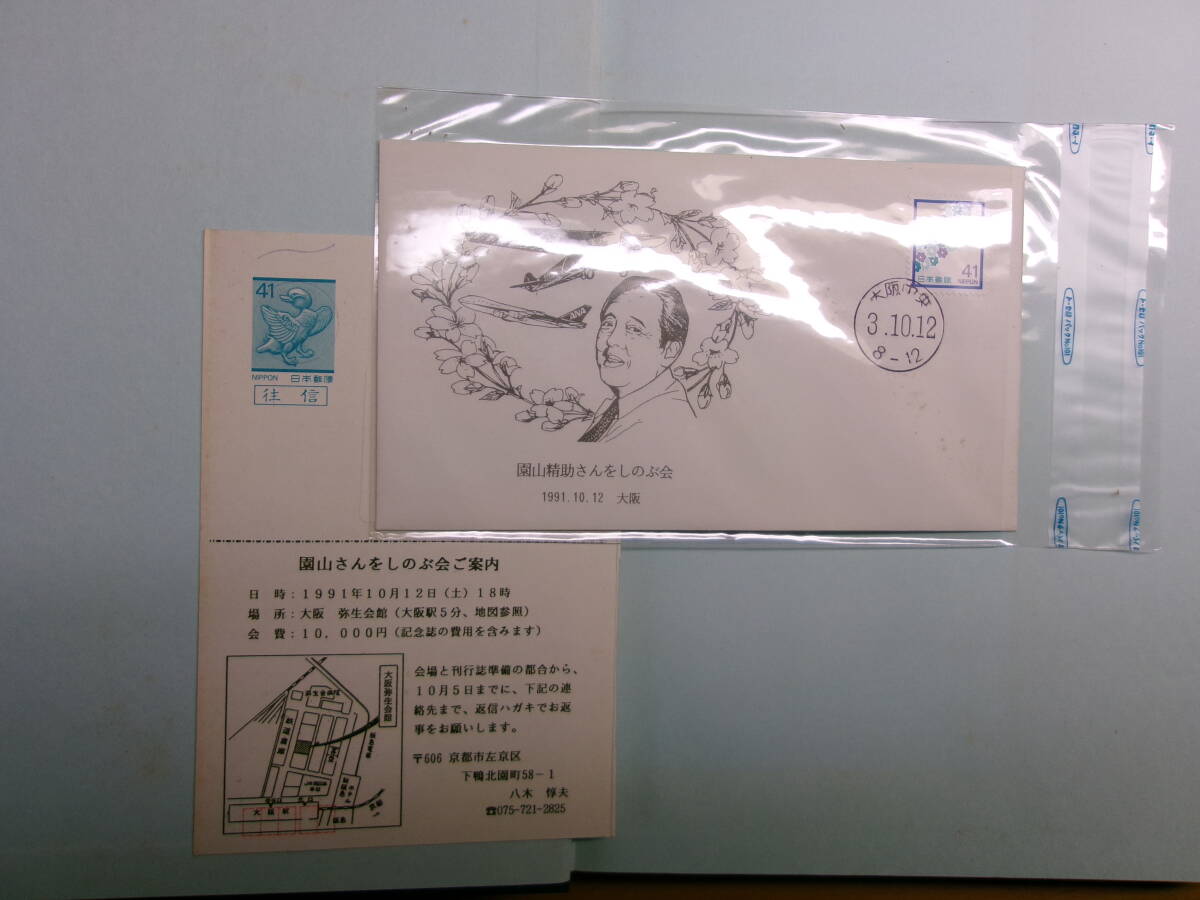 41
日本郵便
NIPPON
大阪中央
3.10.12
8-12
ANA
園山精助さんをしのぶ会
1991.10.12 大阪
41
NIPPON 日本郵便
往信
園山さんをしのぶ会ご案内
日 時:1991年10月12日(土)18時
場 所:大阪 弥生会館(大阪駅5分、地図参照)
会 費:10,000円(記念誌の費用を含みます)
大阪弥生会館
大阪駅
会場と刊行誌準備の都合から、
10月5日までに、下記の連
絡先まで、返信ハガキでお返
事をお願いします。
〒606 京都市左京区
下鴨北園町58-1
八木 惇夫
☎075-721-2825